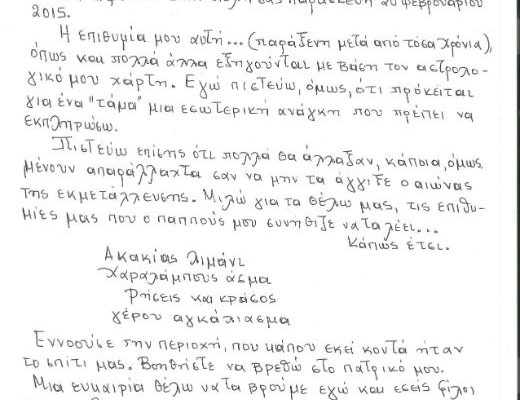 Φεβρουαρίου
2015.
Η επιθυμία μου αυτή... (παράξενη μετά από τόσα χρόνια),
όπως και πολλά άλλα εξηγούνται με βάση τον αστρολο-
γικό μου χάρτη. Εγώ πιστεύω, όμως, ότι πρόκειται
για ένα "τάμα" μια εσωτερική ανάγκη που πρέπει να
εκπληρώσω.
Πιστεύω επίσης ότι πολλά θα άλλαξαν, κάποια, όμως,
μένουν απαράλλαχτα σαν να μην τα άγγιξε ο αιώνας
της εκμετάλλευσης. Μιλώ για τα θέλω μας, τις επιθυ-
μίες μας που ο παππούς μου συνήθιζε να τα λέει...
Κάπως έτσι.
Ακακίας λιμάνι
Χαραλάμπους άσμα
Ρήσεις και κράσος
γέρου αγκάλιασμα
Εννοούσε την περιοχή, που κάπου εκεί κοντά ήταν
το σπίτι μας. Βοηθήστε να βρεθώ στο πατρικό μου.
Μια ευκαιρία θέλω να τα βρούμε εγώ και εσείς φίλοι